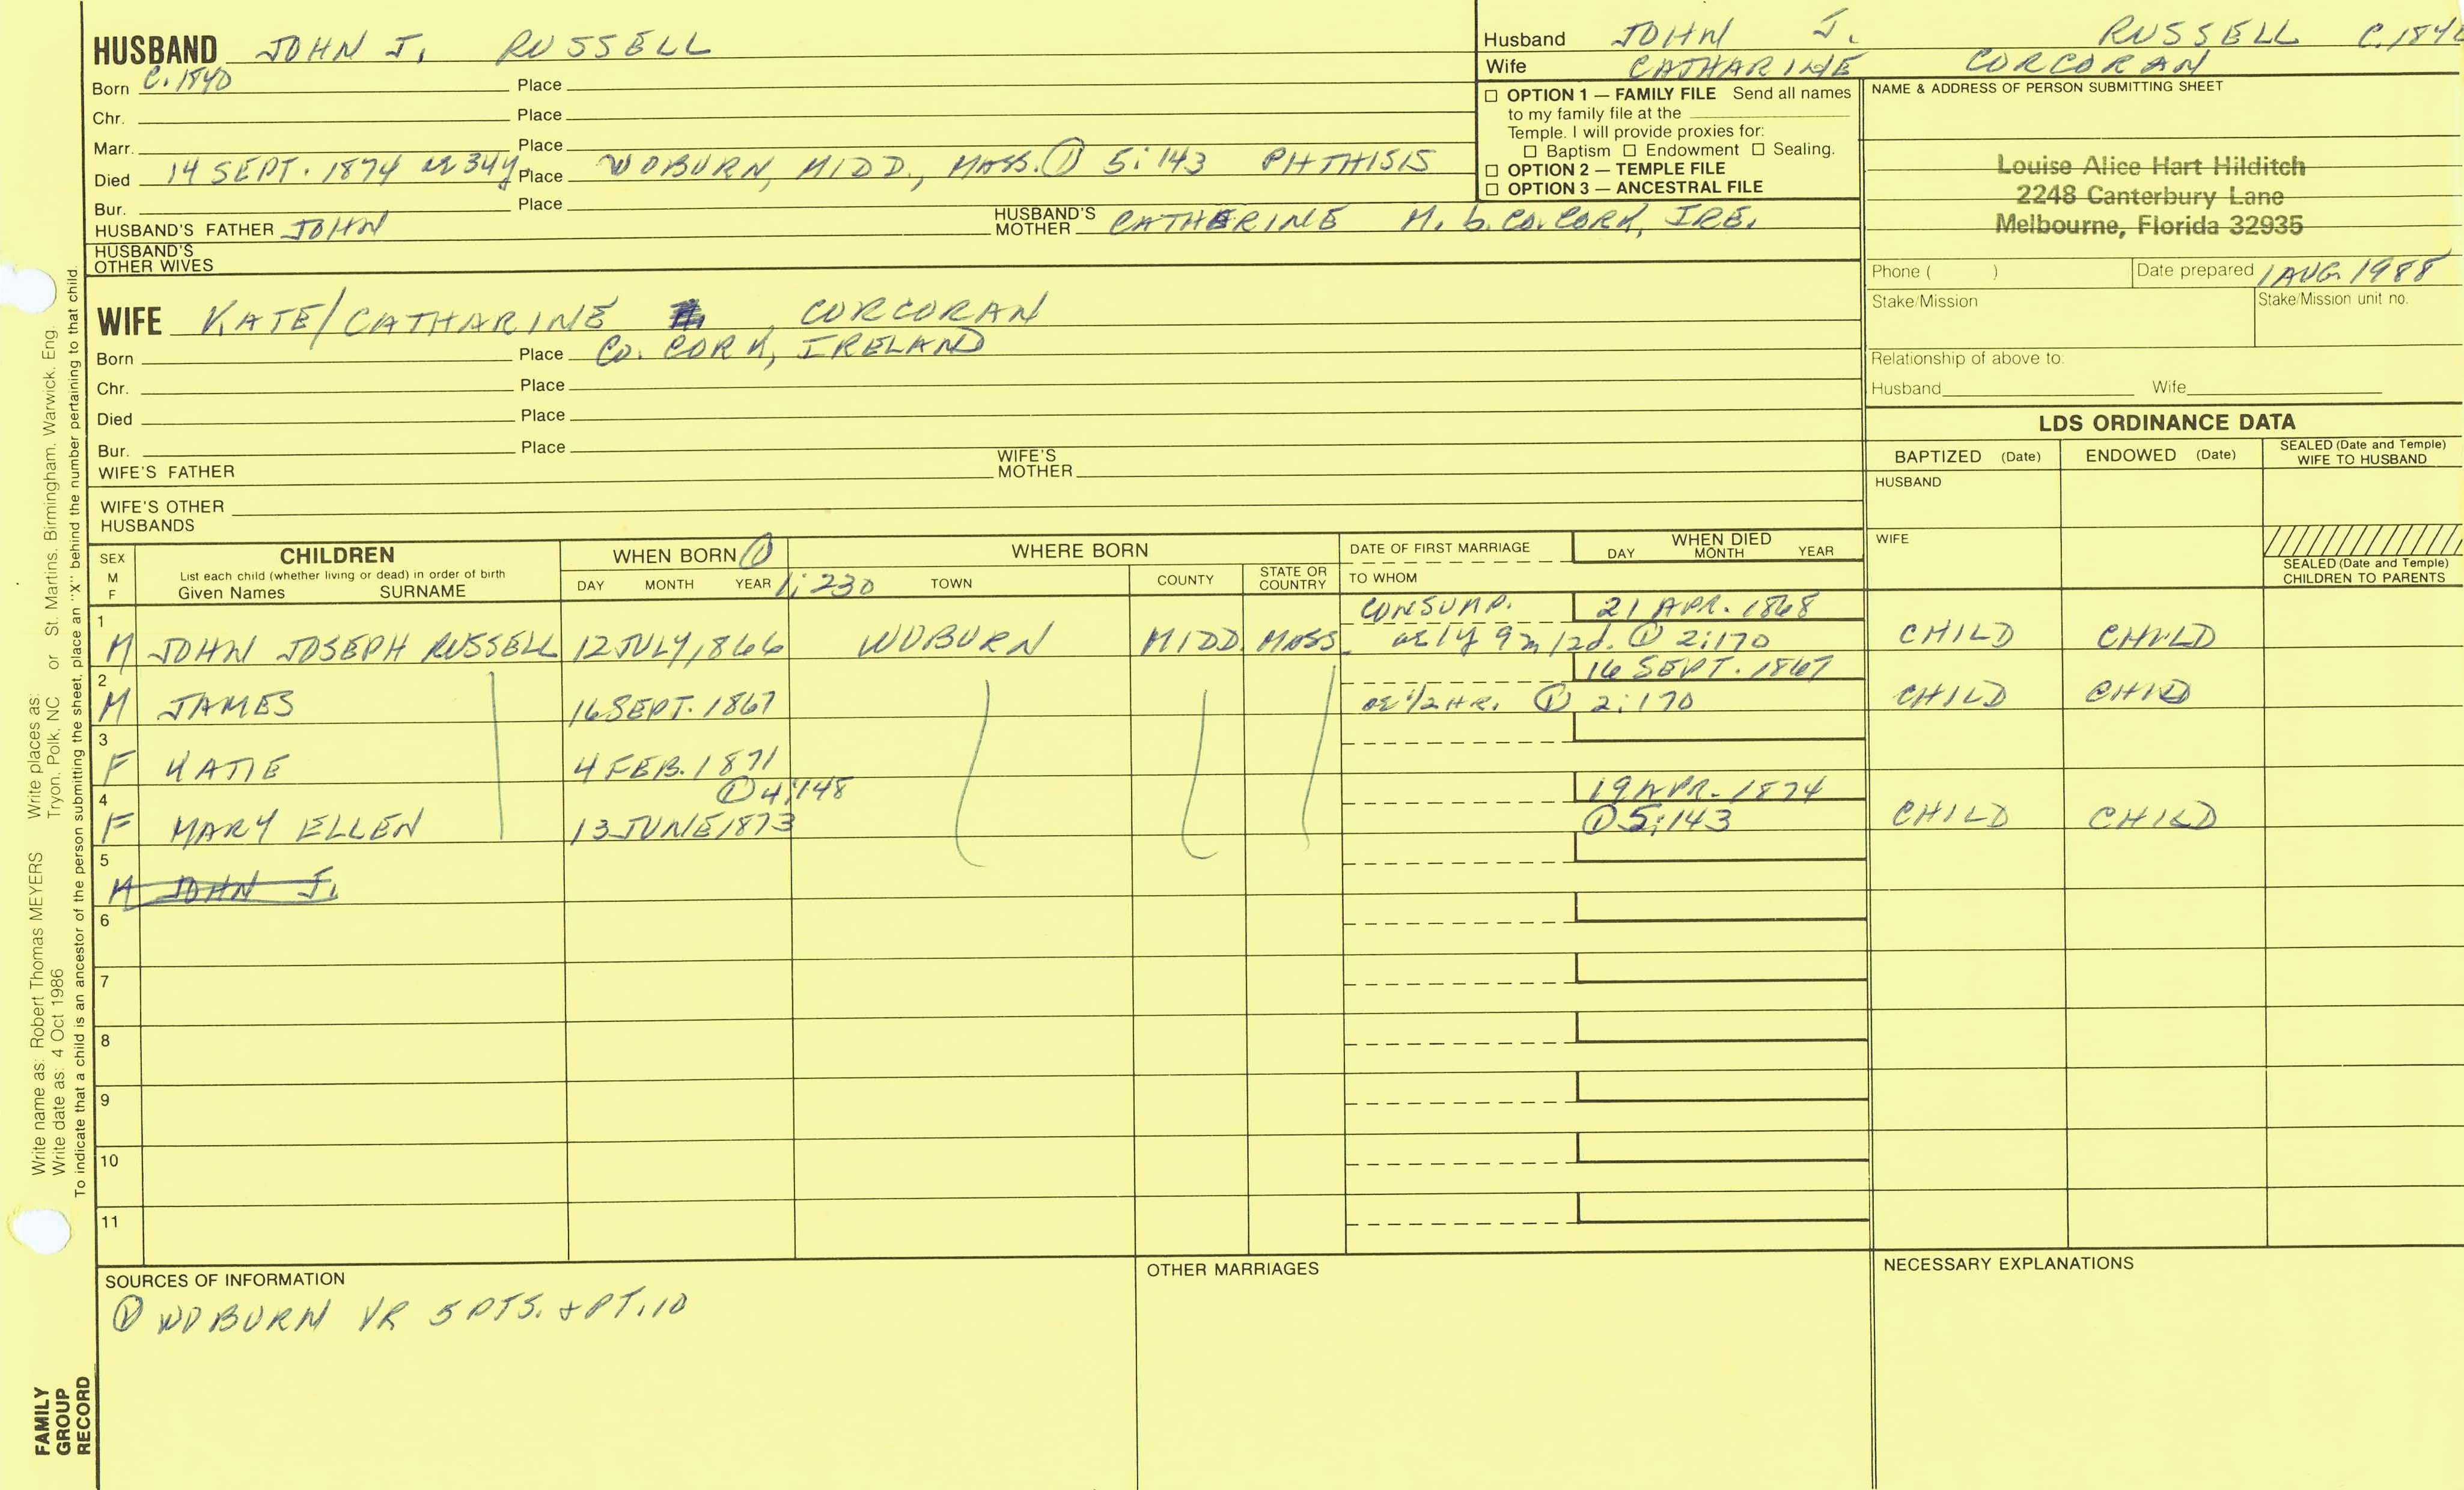 HUSBAND JOHN J. RUSSELL
Born C. 1840 Place
Chr. Place
Marr. Place
Died 14 SEPT. 1874 ae 34y Place WOBURN, MIDD., MASS. ① 5:143 PHTHISIS
Bur. Place
HUSBAND'S FATHER JOHN HUSBAND'S MOTHER CATHERINE M. b. Co. CORK, IRE.
HUSBAND'S OTHER WIVES
WIFE KATE/CATHARINE CORCORAN
Born Place Co. CORK, IRELAND
Chr. Place
Died Place
Bur. Place
WIFE'S FATHER WIFE'S MOTHER
WIFE'S OTHER HUSBANDS
Husband JOHN J. RUSSELL C. 1840
Wife CATHARINE CORCORAN
☐ OPTION 1 — FAMILY FILE Send all names
to my family file at the
Temple. I will provide proxies for:
☐ Baptism ☐ Endowment ☐ Sealing.
☐ OPTION 2 — TEMPLE FILE
☐ OPTION 3 — ANCESTRAL FILE
NAME & ADDRESS OF PERSON SUBMITTING SHEET
Louise Alice Hart Hilditch
2248 Canterbury Lane
Melbourne, Florida 32935
Phone ( ) Date prepared 1 AUG. 1988
Stake/Mission Stake/Mission unit no.
Relationship of above to:
Husband Wife
LDS ORDINANCE DATA
BAPTIZED (Date) ENDOWED (Date) SEALED (Date and Temple) WIFE TO HUSBAND
HUSBAND
WIFE
SEALED (Date and Temple) CHILDREN TO PARENTS
SEX M F
CHILDREN
List each child (whether living or dead) in order of birth
Given Names SURNAME
WHEN BORN ①
DAY MONTH YEAR 1:230
WHERE BORN
TOWN COUNTY STATE OR COUNTRY
DATE OF FIRST MARRIAGE
TO WHOM
WHEN DIED
DAY MONTH YEAR
1 CONSUMP. 21 APR. 1868
M JOHN JOSEPH RUSSELL 12 JULY 1866 WOBURN MIDD. MASS. ae 1y 9m 12d. ① 2:170 CHILD CHILD
2 16 SEPT. 1867
M JAMES 16 SEPT. 1867 ae 1/2 HR. ① 2:170 CHILD CHILD
3
F KATIE 4 FEB. 1871
4 ① 4:148 19 APR. 1874
F MARY ELLEN 13 JUNE 1873 ① 5:143 CHILD CHILD
5
M JOHN J.
6
7
8
9
10
11
SOURCES OF INFORMATION
① WOBURN VR 5 PTS. + PT. 10
OTHER MARRIAGES
NECESSARY EXPLANATIONS
Write name as: Robert Thomas MEYERS Write places as: Tryon, Polk, NC or St. Martins, Birmingham, Warwick, Eng.
Write date as: 4 Oct 1986
To indicate that a child is an ancestor of the person submitting the sheet, place an "X" behind the number pertaining to that child.
FAMILY
GROUP
RECORD